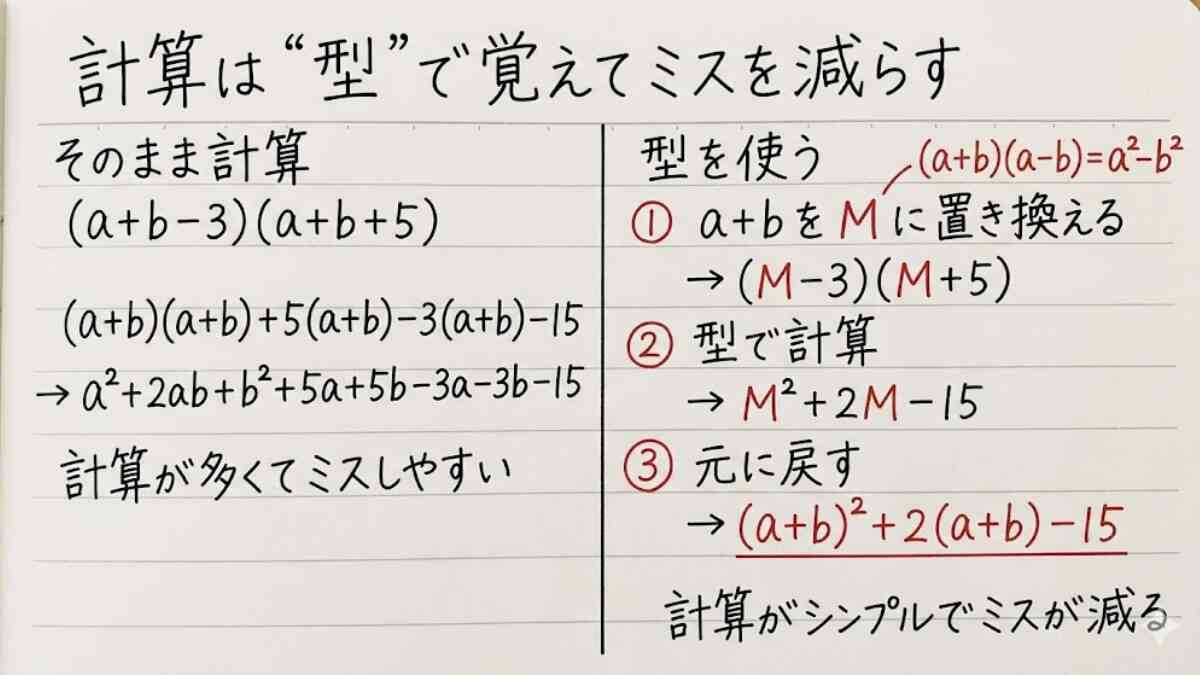 計算は“型”で覚えてミスを減らす
そのまま計算
(a+b−3)(a+b+5)
(a+b)(a+b)+5(a+b)−3(a+b)−15
→ a²+2ab+b²+5a+5b−3a−3b−15
計算が多くてミスしやすい
型を使う
(a+b)(a−b)=a²−b²
① a+bをMに置き換える
→ (M−3)(M+5)
② 型で計算
→ M²+2M−15
③ 元に戻す
→ (a+b)²+2(a+b)−15
計算がシンプルでミスが減る